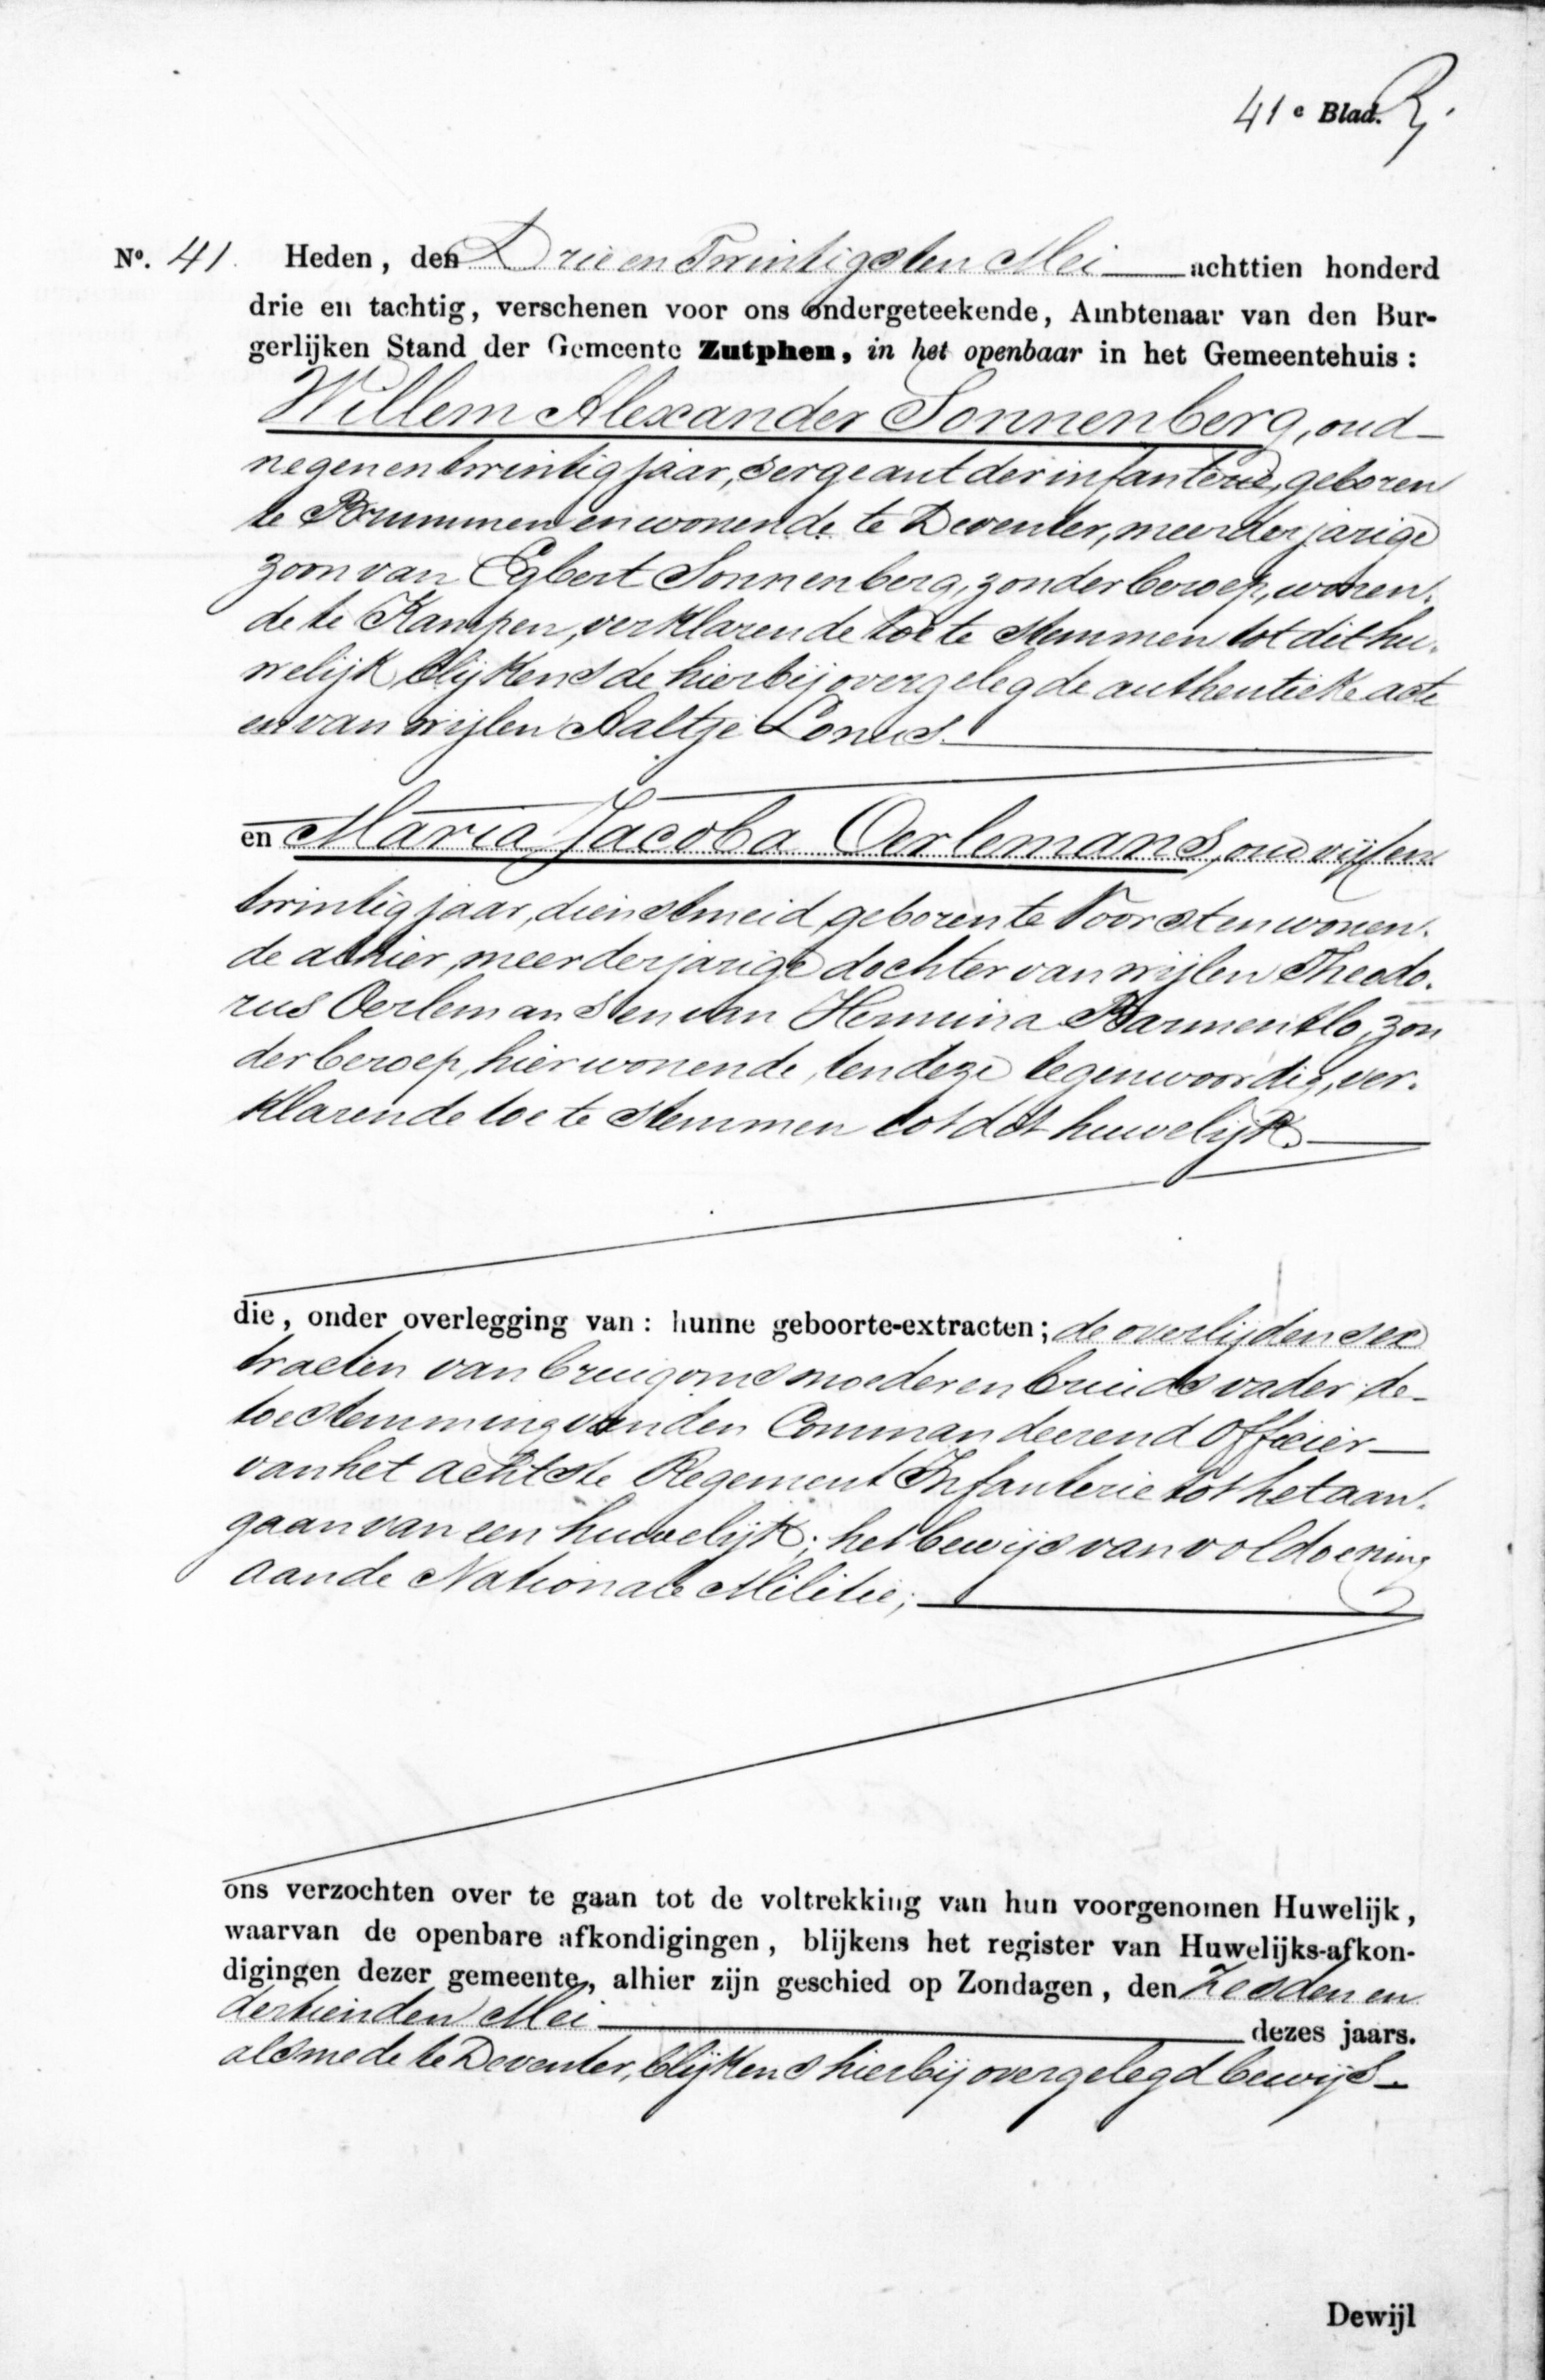 41e Blad.
No. 41. Heden, den Drie en Twintigsten Mei achttien honderd
drie en tachtig, verschenen voor ons ondergeteekende, Ambtenaar van den Bur-
gerlijken Stand der Gemeente Zutphen, in het openbaar in het Gemeentehuis:
Willem Alexander Sonnenberg, oud
negen en twintig jaar, sergeant der infanterie, geboren
te Brummen en wonende te Deventer, meerderjarige
zoon van Egbert Sonnenberg, zonder beroep, wonen-
de te Kampen, verklarende toe te stemmen tot dit hu-
welijk blijkens de hierbij overgelegde authentieke acte
en van wijlen Aaltje Lonus.
en Maria Jacoba Oerlemans, oud vijf en
twintig jaar, dienstmeid, geboren te Voorst en wonen-
de alhier, meerderjarige dochter van wijlen Theodo-
rus Oerlemans en van Hermina Barmentlo, zon
der beroep, hier wonende, ten deze tegenwoordig, ver-
klarende toe te stemmen tot dit huwelijk.
die, onder overlegging van: hunne geboorte-extracten; de overlijdensex
tracten van bruigoms moeder en bruids vader; de
toestemming van den Commandeerend Officier
van het achtste Regement Infanterie tot het aan-
gaan van een huwelijk; het bewijs van voldoening
aan de Nationale Militie;
ons verzochten over te gaan tot de voltrekking van hun voorgenomen Huwelijk,
waarvan de openbare afkondigingen, blijkens het register van Huwelijks-afkon-
digingen dezer gemeente, alhier zijn geschied op Zondagen, den Zesden en
dertienden Mei dezes jaars.
alsmede te Deventer, blijkens hierbij overgelegd bewijs.
Dewijl